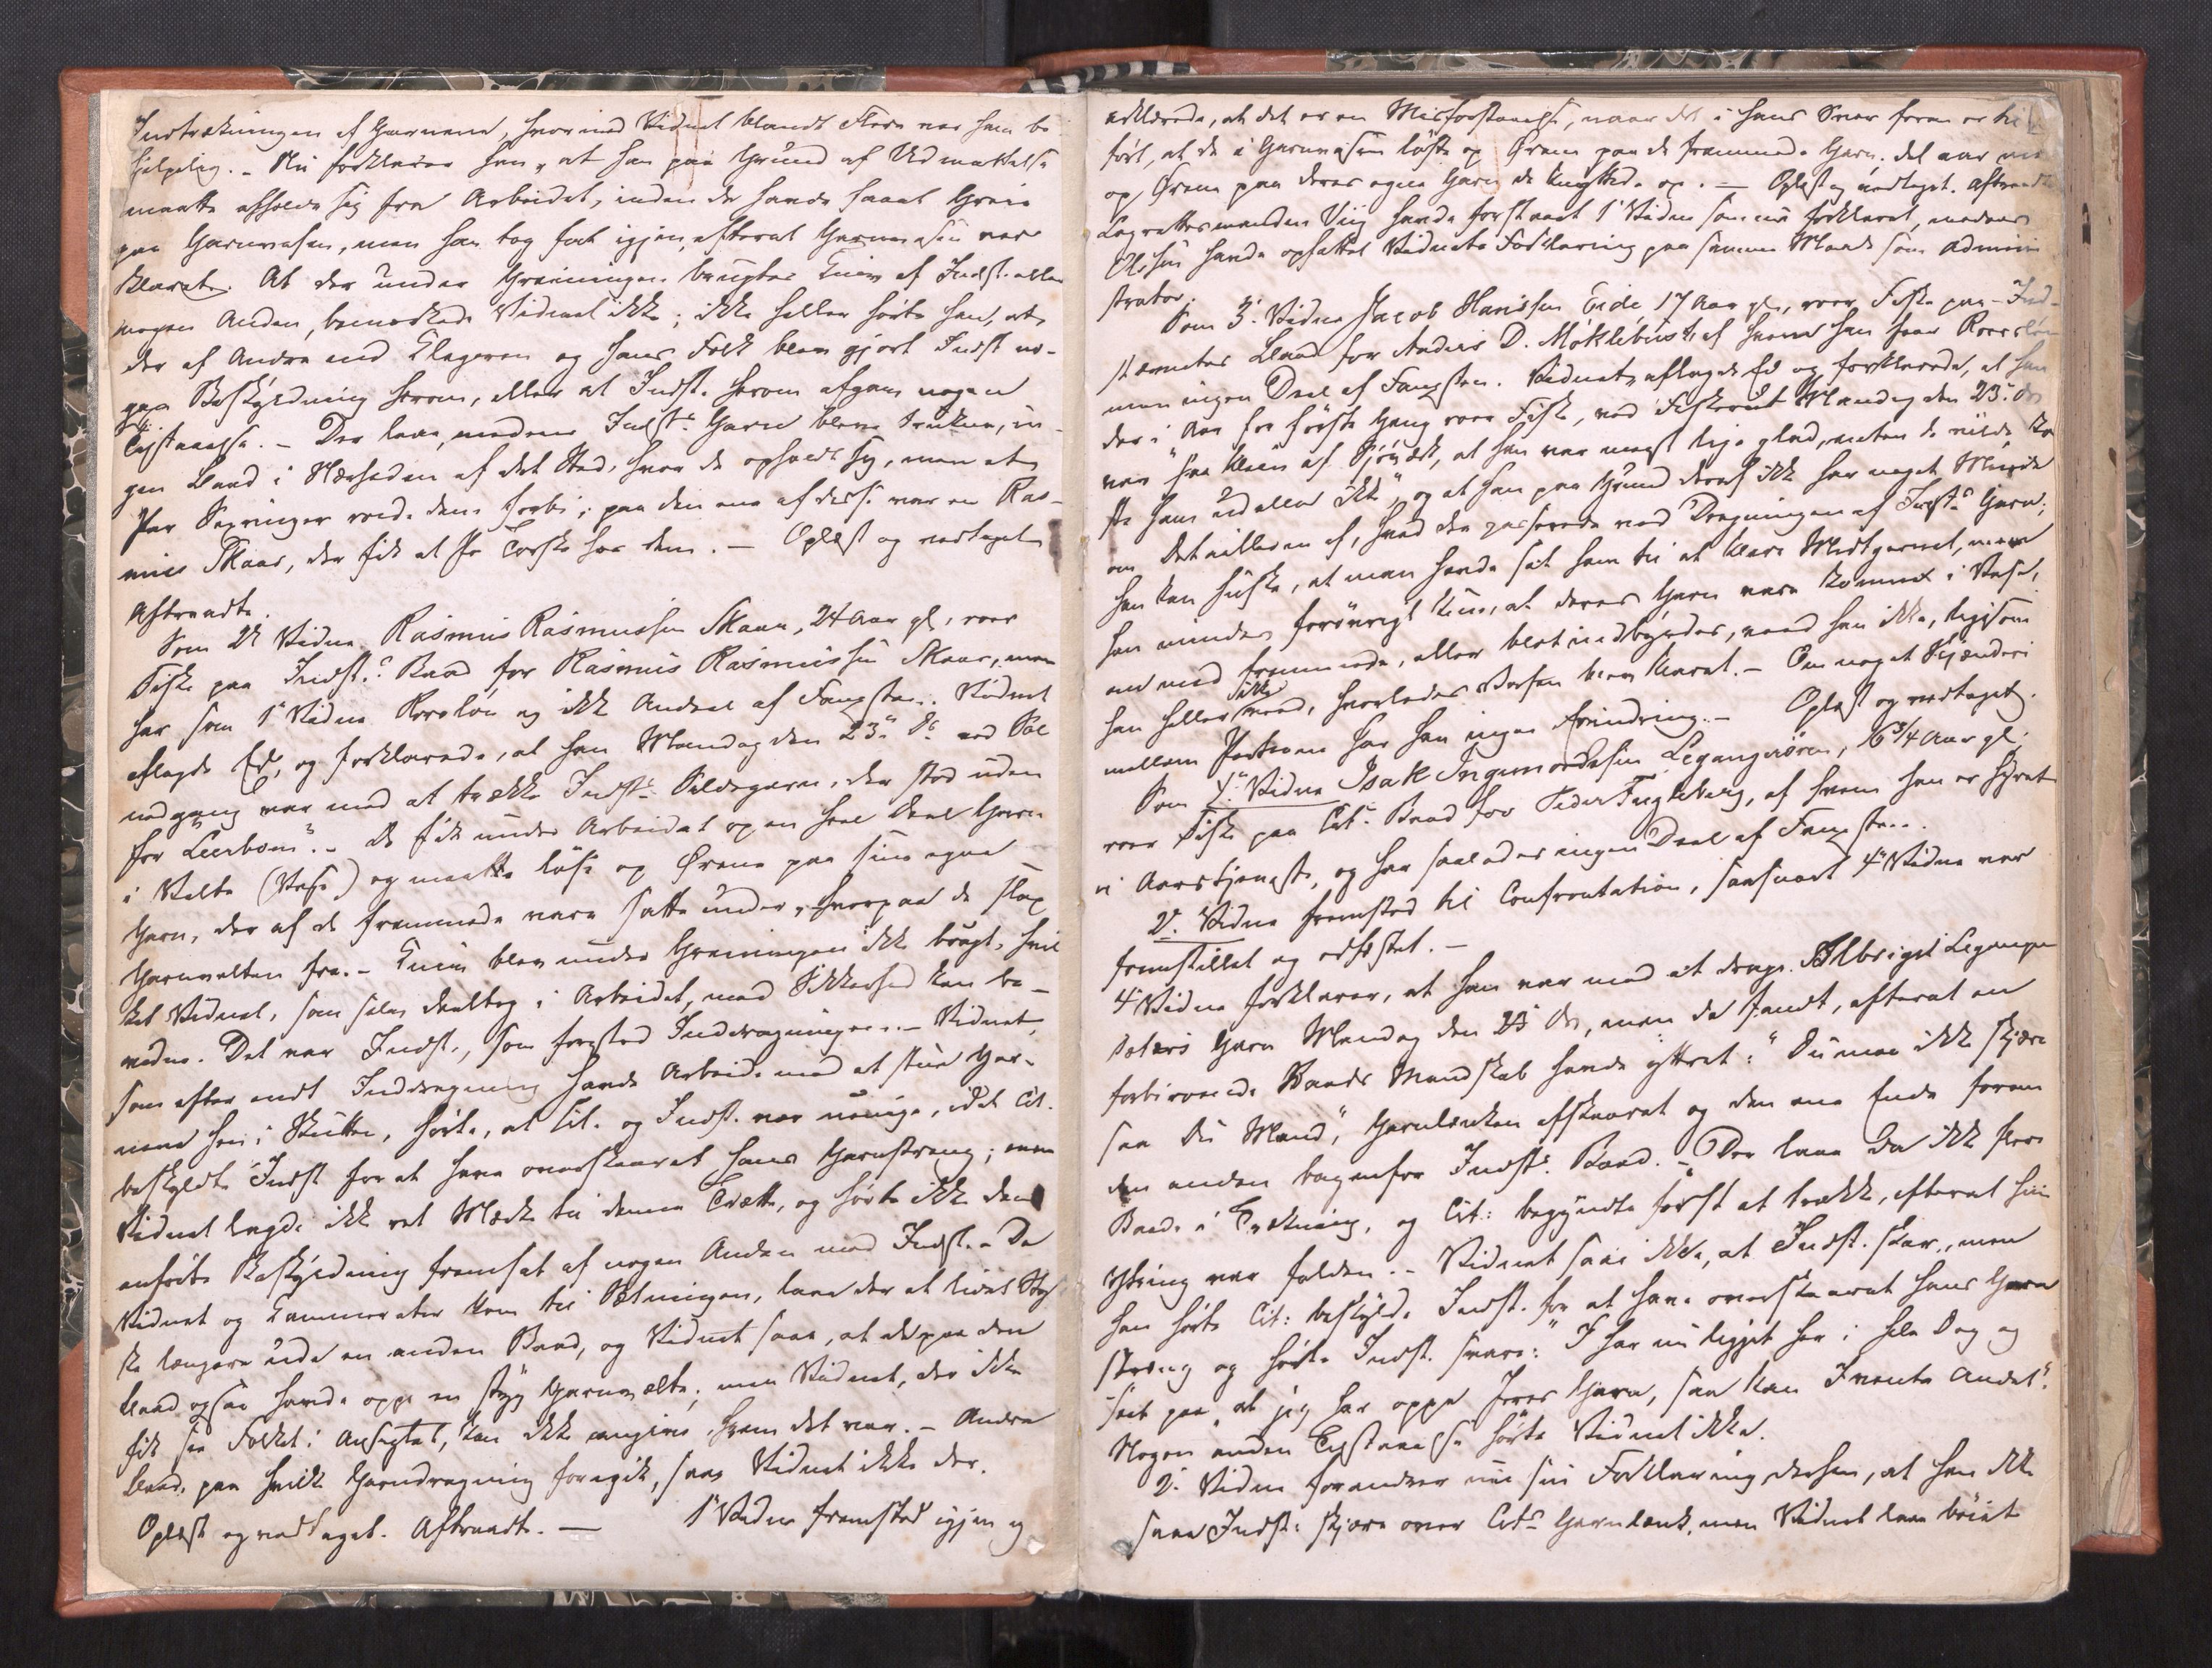 Indtrækningen af Garnene, hvormed Vidnet blandt Flere var ham be-
hjelpelig. - Nu forklarer han, at han paa Grund af Udmattelse
maatte afholde sig fra Arbeidet, inden de havde faaet Greie
paa Garnvasen, men han tog fat igjen, efterat Garnvasen var
klaret. At der under Greiningen brugtes Kniv af Indst. eller
nogen Anden, bemærkede Vidnet ikke; ikke heller hørte han, at
der af Andre end Klageren og hans Folk blev gjort Indst. no-
gen Beskyldning herom, eller at Indst. herom afgav nogen
Tilstaaelse. - Der laae, medens Indst.s Garn bleve trukne, in-
gen Baad i Nærheden af det Sted, hvor de opholdt sig, men et
Par Sexringer roede dem forbi; paa den ene af disse var en Ras-
mus Skaar, der fik et Par Torske hos dem. - Oplæst og vedtaget
Aftraadte.
Som 2det Vidne Rasmus Rasmussen Skaar, 24 Aar gl., roer
Fiske paa Indst.s Baad for Rasmus Rasmussen Skaar, men
har som 1e Vidne Roersløn og ikke Andeel af Fangsten. Vidnet
aflagde Ed, og forklarede, at han Mandag den 23de ds. ved Sol
nedgang var med at trække Indst.s Sildegarn, der stod uden
for "Leerbom". - De fik under Arbeidet op en heel Deel Garn
i Velte (Vase) og maatte løse op Ørene paa sine egne
Garn, der af de fremmede vare satte under, hvorpaa de slap
Garnvelten fra. - Kniv blev under Greiningen ikke brugt, hvil
ket Vidnet, som selv deeltog i Arbeidet, med Sikkerhed kan be-
vidne. Det var Indst., som forestod Inddragningen. - Vidnet,
som efter endt Inddragning havde Arbeide med at stue Gar-
nene hen i Skutten, hørte, at Cit. og Indst. var uenige, idet Cit.
beskyldte Indst. for at have overskaaret hans Garnstreng; men
Vidnet lagde ikke ret Mærke til denne Trætte, og hørte ikke den
anførte Beskyldning fremsat af nogen Anden mod Indst. - Da
Vidnet og Kammerater kom til Sætningen, laae der et lidet Styk
ke længere ude en anden Baad, og Vidnet saae, at de paa den
Baad ogsaa havde oppe en styg Garnvelte; men Vidnet, der ikke
fik see Folket i Ansigtet, kan ikke angive, hvem det var. - Andre
Baade, paa hvilke Garndragning foregik, saae Vidnet ikke der.
Oplæst og vedtaget. Aftraadte. - 1e Vidne fremstod igjen og
erklærede, at det er en Misforstaaelse, naar det i hans Svar foran er til
ført, at de i Garnvasen løste op Ørene paa de fremmede Garn; det var
op Ørene paa deres egne Garn de knyttede op. - Oplæst og vedtaget. Aftraadte
Lagrettesmanden Viig havde forstaaet 1e Vidne som nu forklaret, medens
Olsen havde opfattet Vidnets Forklaring paa samme Maade som Admini
strator.
Som 3. Vidne Jacob Hansen Eide, 17 Aar gl., roer Fiske paa Ind-
stævntes Baad for Anders D. Møklebust, af hvem han faar Roersløn
men ingen Deel af Fangsten. Vidnet aflagde Ed og forklarede, at han
der i Aar for første Gang roer Fiske, ved Fiskeriet Mandag den 23de ds.
var "saa klein af Sjøsyge, at han var meget lige glad, enten de vilde ka
ste ham ud eller ikke", og at han paa Grund deraf ikke har noget Minde
om Detaillerne af, hvad der passerede ved Dragningen af Indst.s Garn;
han kan huske, at man havde sat ham til at klare Midtgarnet, men
han mindes forøvrigt kun, at deres Garn vare komne i Vase;
om med fremmede, eller blot indbyrdes, veed han ikke, ligesom
han heller ikke veed, hvorledes Vasen blev klaret. - Om noget Skjænderi
mellem Parterne har han ingen Erindring. - Oplæst og vedtaget.
Som 4. Vidne Isak Ingemordsen Legangøren, 16 3/4 Aar gl.,
roer Fiske paa Cit.s Baad for Peder Fugleberg, af hvem han er hyret
i Aarstjeneste, og har saaledes ingen Deel af Fangsten.
2. Vidne fremstod til Confrontation, saasnart 4e Vidne var
fremstillet og edfæstet. -
4e Vidne forklarer, at han var med at drage Albrigt Leganger
Søters Garn Mandag den 23 ds., men de fandt, efterat en
forbiroende Baads Mandskab havde yttret: "Du maa ikke skjære
saa Du Mand", Garnlænken afskaaret og den ene Ende foran
den anden bagenfor Indst.s Baad. - Der laae da ikke flere
Baade i Trækning, og Cit. begyndte først at trække, efterat hiin
Yttring var falden. - Vidnet saae ikke, at Indst. skar, men
han hørte Cit. beskylde Indst. for at have overskaaret hans Garn
streng og hørte Indst. svare: "I har nu ligget her i hele Dag og
seet paa, at jeg har oppe Jeres Garn, saa kan I vente Andet".
Nogen anden Tilstaaelse hørte Vidnet ikke.
2. Vidne forandrer nu sin Forklaring derhen, at han ikke
saae Indst. skjære over Cit.s Garnlænk, men Vidnet laae bøiet